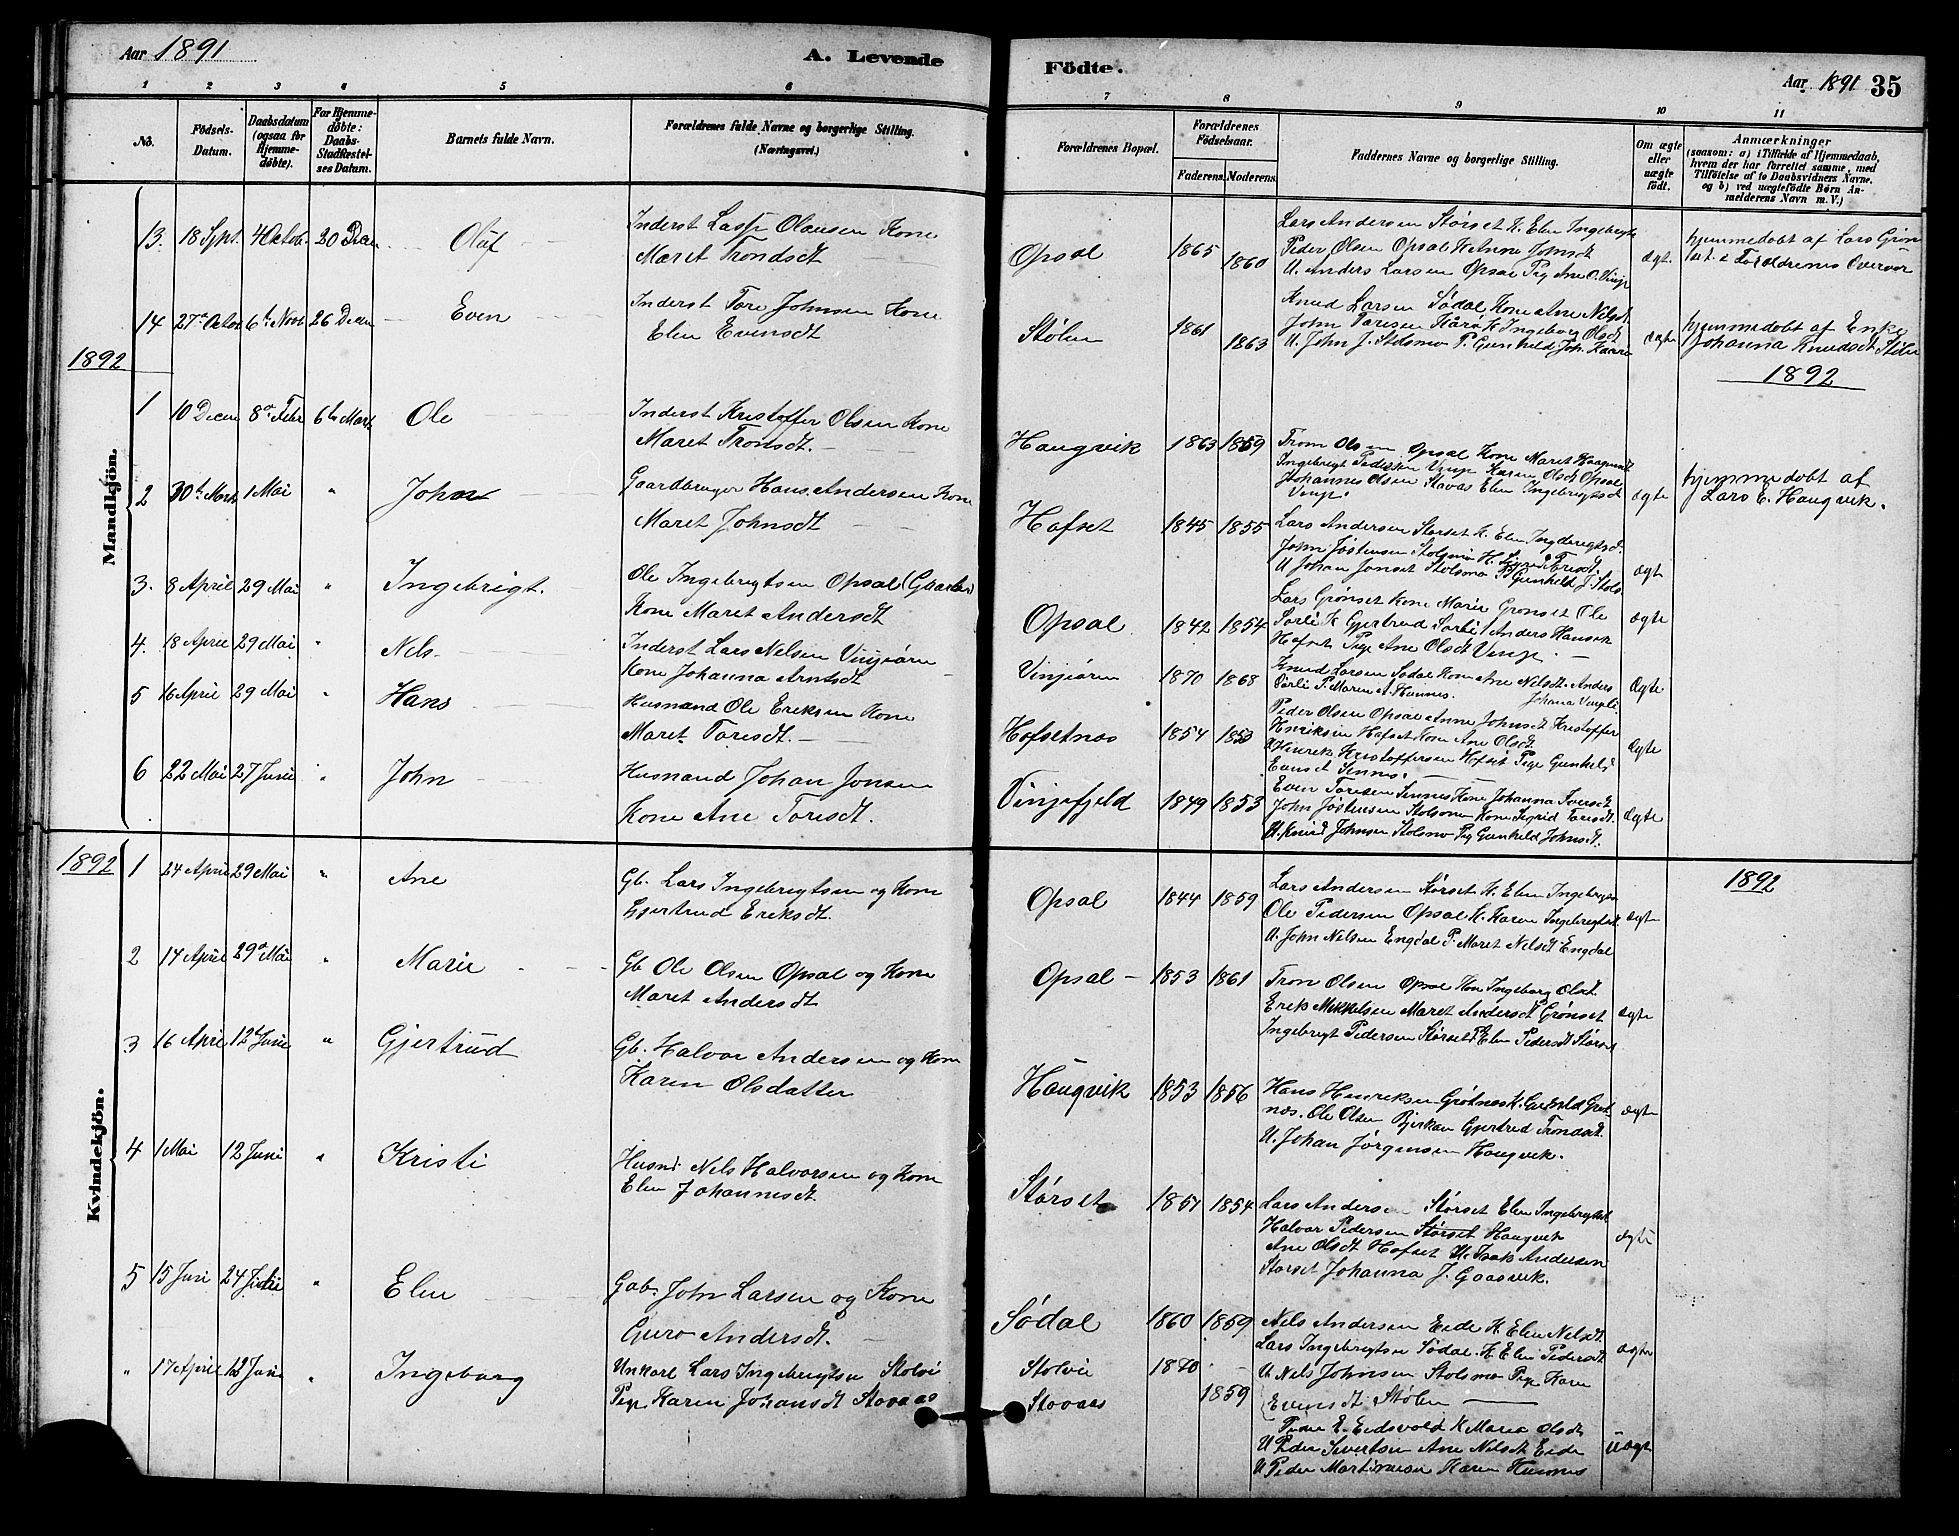 Aar 1891
A. Levende
Födte.
Aar 1891 35
1 2 3 4 5 6 7 8 9 10 11
No.
Födsels-Datum.
Daabsdatum (ogsaa for Hjemme-döbte).
For Hjemme-döbte: Daabs-Stadfæstel-ses Datum.
Barnets fulde Navn.
Forældrenes fulde Navne og borgerlige Stilling. (Næringsvei.)
Forældrenes Bopæl.
Forældrenes Födselsaar.
Faderens. Moderens.
Faddernes Navne og borgerlige Stilling.
Om ægte eller uægte födt.
Anmærkninger
(saasom: a) i Tilfælde af Hjemmedaab, hvem der har forrettet samme, med Tilföielse af to Daabsvidners Navne, og b) ved uægtefödte Börn An-melderens Navn m. V.)
13. 18 Sept. 4 Octob. 20 Decm Olaf
Inderst Lasse Olausen Kone
Maret Trondsdt
Opsal 1865 1860
Lars Andersen Störset K. Elen Ingebrigts
Peder Olsen Opsal K Anne Johnsdt
U. Anders Larsen Opsal Pig Ane O. Vinge
ægt.
hjemmedobt af Lars Grön
i Forældrenes Overvær
14 27 Octob 6te Novb 26 Decm Even
Inderst Tore Johnsen Kone
Elen Evensdt
Stølen 1861 1863
Knud Larsen Södal Kone Ane Nilsdt
John Toresen Kårø K Ingeborg Olsdt
U. John J. Stolsmo P. Gunhild Joh. Kaarø
ægte
hjemmedobt af Enke
Johanna Knudsdt Støln
1892
1892
Mandkjön.
1 10 Decem 8de Febr 6te Marts Ole
Inderst Kristoffer Olsen Kone
Maret Tronsdt.
Haugvik 1863 1859
Tron Olsen Opsal Kone Maret
Ingebrigt Pedersen Vinge Karen Olsdt Opsal
Johannes Olsen Stavas Elen Ingebrigtsdt
Vinge.
ægte
hjemmedobt af
Lars E. Haugvik.
2 30te Marts 1 Mai " John
Gaardbruger Hans Andersen Kone
Maret Johnsdt
Hofset 1845 1855
Lars Andersen Størset K. Elen Ingebregtsd.
John Jöstensen Stolsmo K. Sigrid Toresdt.
U Johan Jonset Stolsmo P Gunhild J. Stols
ægt
3. 8 April 29 Mai " Ingebrigt.
Ole Ingebregtsen Opsal (Gaarbr)
Kone Maret Andersdt
Opsal 1842 1854
Lars Grönset Kone Marie Grønset Ole
Sørli K Gjertrud Sørli Anders Hansen
Hofset Pige Ane Olsdt Vinge.
ægte
4. 18 April 29 Mai " Nels
Inderst Lars Nelsen Vinjeörn
Kone Johanna Arntsdt
Vinjeörn 1870 1868
Knud Larsen Sodal Kone Ane Nilsdt. Anders
Sørli P. Maren A. Hennes.
Johana Vingli
Ægte
5 16 April 29 Mai " Hans
Husmand Ole Eriksen Kone
Maret Toresdt.
Hofsetnæs 1854 1853
Peder Olsen Opsal Anne Johnsdt Kristoffer
Henriksen Hofset Kone Ane Olsdt.
Henrik Kristoffersen Hofset Pige Gunhild
Evensdt Sinnes.
Ægte
6 22 Mai 27 Juni " John
Husmand Johan Jonsen
Kone Ane Toresdt.
Vinjefjeld 1849 1853
Even Toresen Sinnes Kone Johanna Iversdt
John Jöstensen Stolsmo Kone Sigrid Toresdt.
U. Knud Johnsen Stolsmo Pig Gunhild Johnsdt.
Ægte
1892
1892
Kvindekjön.
1 24 April 29 Mai " Ane
Gb. Lars Ingebregtsen og Kone
Gjertrud Eriksdt.
Opsal 1844 1859
Lars Andersen Störset K. Elen Ingebregtsen
Ole Pedersen Opsal K. Karen Ingebregtsdt.
U. John Nelsen Engdal P. Maret Nelsdt Engdal
ægte
2 14 April 29de Mai " Marie
Gb Ole Olsen Opsal og Kone
Maret Andersdt
Opsal 1853 1861
Tron Olsen Opsal Kon Ingeborg Olsdt.
Erik Mikkelsen Maret Andersdt Grönset
Ingebregt Pedersen Størset P Elen Pedersdt Störset
ægte
3 16 April 12te Juni " Gjertrud
Gb. Halvor Andersen og Kone
Karen Olsdatter
Haugvik 1853 1856
Hans Henriksen Grötnes K. Gunhild Grøt
næs. Ole Olsen Bjerkan Gjertrud Trondsdt.
U. Johan Jørgensen Haugvik.
ægte
4 1 Mai 12 Juni " Kristi
Husm. Nels Halvorsen og Kone
Elen Johannesdt
Størset 1851 1854
Lars Andersen Störset Elen Ingebregtsdt
Halvor Pedersen Störset Haugvik
Ane Olsdt Hofset U. Isak Andersen
Størset Johanna J. Gaasvik.
ægte
5 15 Juni 24 Juli " Elen
Gab. John Larsen og Kone
Guro Andersdt.
Södal 1860 1859
Nels Andersen Eide K. Elen Nelsdt.
Lars Ingebregtsen Södal. K. Elen Pedersdt
U Nels Johnsen Stolsmo Pige Karen
Evensdt Stølen
ægte
" 17 April 12 Juni " Ingeborg
Unkarl Lars Ingebregtsen Stolvi
Pige Karen Johansdt Stovaas
Stolvii 1870
Stovaas 1859
Peder E. Eidsvold K Maria Olsdt
U Peder Sivertsen Ane Nelsdt Eide
U Peder Martinusen Karen Husnes
Uægt